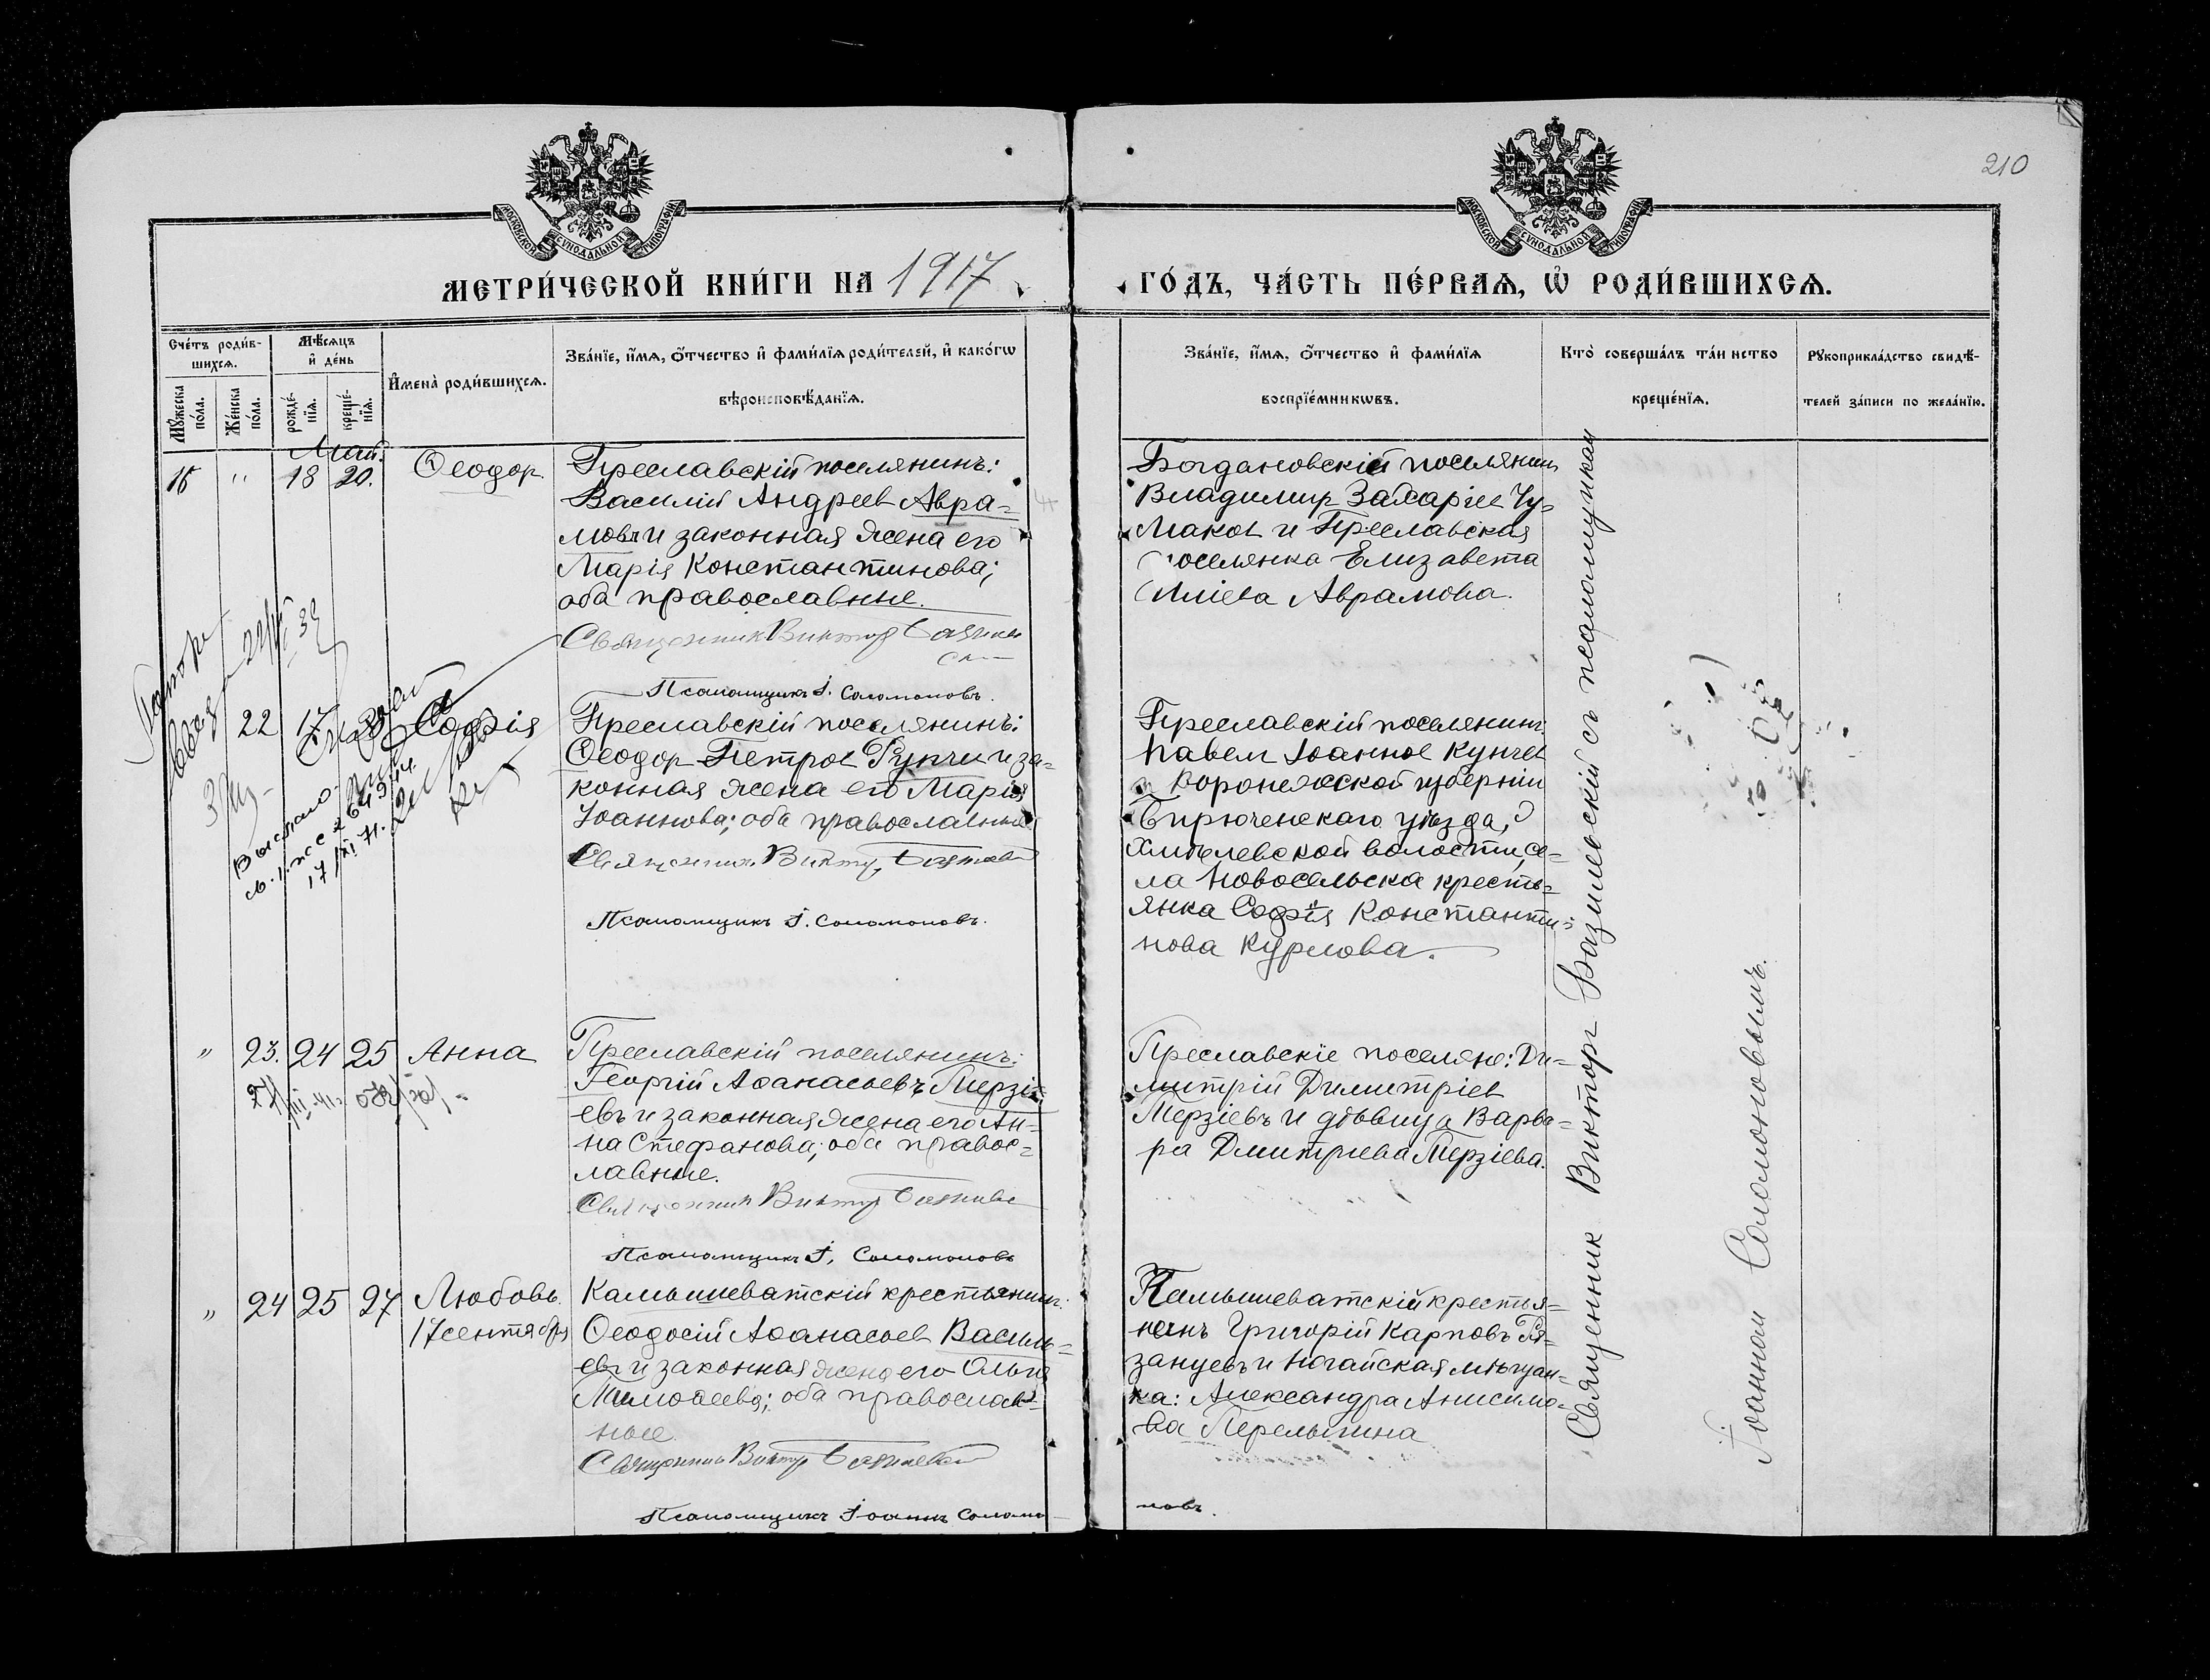 210
МОСКОВСКОЙ СУНОДАЛЬНОЙ ТИПОГРАФІИ
МОСКОВСКОЙ СУНОДАЛЬНОЙ ТИПОГРАФІИ
МЕТРИ́ЧЕСКОЙ КНИ́ГИ НА 1917
ГО́ДЪ, ЧА́СТЬ ПЕ́РВАѦ, Ѡ҆ РОДИ́ВШИХСѦ.
Сче́тъ роди́в-
шихсѧ.
Мꙋ́жеска по́ла.
Же́нска по́ла.
Мѣ́сѧцъ
и҆ де́нь
рожде́-
нїѧ.
креще́-
нїѧ.
И҆мена̀ роди́вшихсѧ.
Зва́нїе, и҆́мѧ, ѻ҆́тчество и҆ фами́лїѧ роди́телей, и҆ како́гѡ
вѣроисповѣ́данїѧ.
Зва́нїе, и҆́мѧ, ѻ҆́тчество и҆ фами́лїѧ
воспрїе́мникѡвъ.
Кто̀ соверша́лъ та́инство
креще́нїѧ.
Рꙋкоприкла́дство свидѣ́-
телей за́писи по жела́нїю.
Май.
18 20. Ѳеодор.
Преславскій поселянинъ:
Василій Андреев Авра=
мовъ и законная жена его
Марія Константинова;
оба православные.
Священник Виктор
Псаломщикъ І. Соломоновъ.
Богдановскій поселянин
Владимир Захаріев Чу=
маков и Преславская
поселянка Елизавета
Иліева Аврамова.
22 17 София
Преславскій поселянинъ:
Ѳеодор Петров Гунчев и за=
конная жена его Марія
Іоаннова; оба православные
Священник Виктор
Псаломщикъ І. Соломоновъ.
Преславскій поселянинъ
Павел Іоаннов Кунчев
и Воронежской губерніи
Бирюченскаго уѣзда,
волости, се=
ла Новосельска кресть=
янка Софія Константи=
нова Курлова.
17/XI 71.
" 23. 24 25 Анна
Преславскій поселянинъ:
Георгій Аѳанасьевъ Терзі=
евъ и законная жена его Ан=
на Стефанова; оба правос=
лавные.
Священник Виктор
Псаломщикъ І. Соломоновъ
Преславскіе поселяне: Ди=
митрій Димитріев
Терзіевъ и дѣвица Варва=
ра Дмитриева Терзіева.
" 24 25 27 Любовь.
17 сентября
Камышеватскій крестьянин:
Ѳеодосій Аѳанасьев Василь=
евъ и законная жена его Ольга
Тимоѳеева; оба православ=
ные
Священник Виктор
Псаломщикъ Іоаннъ Соломо-
новъ.
Камышеватскій крестья=
нинъ Григорій Карповъ Ря=
занцевъ и Ногайская мѣщан=
ка: Александра Анисимо=
ва Перелыгина
Священник Виктор Базилевскій съ псаломщиком
Іоанном Соломоновымъ.